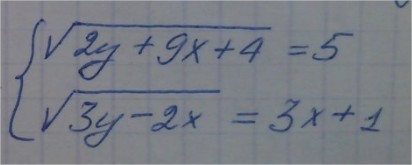 √(2y + 9x + 4) = 5
√(3y − 2x) = 3x + 1